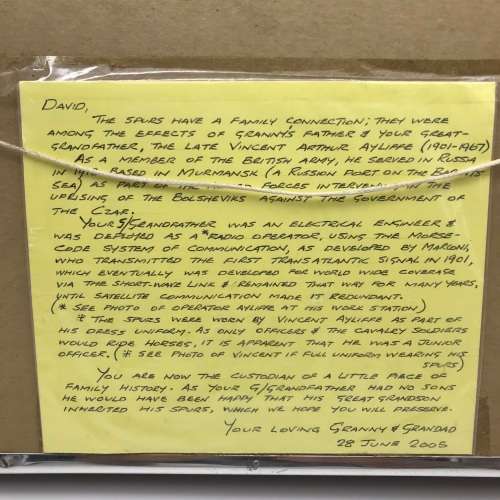 DAVID,
THE SPURS HAVE A FAMILY CONNECTION; THEY WERE
AMONG THE EFFECTS OF GRANNY'S FATHER & YOUR GREAT-
GRANDFATHER, THE LATE VINCENT ARTHUR AYLIFFE (1901-1967)
AS A MEMBER OF THE BRITISH ARMY, HE SERVED IN RUSSIA
IN BASED IN MURMANSK (A RUSSIAN PORT ON THE
SEA) AS PART OF THE FORCES INTERVENING IN THE
UPRISING OF THE BOLSHEVIKS AGAINST THE GOVERNMENT OF
THE CZAR.
YOUR G/GRANDFATHER WAS AN ELECTRICAL ENGINEER &
WAS DEPLOYED AS A *RADIO OPERATOR, USING THE MORSE-
CODE SYSTEM OF COMMUNICATION, AS DEVELOPED BY MARCONI,
WHO TRANSMITTED THE FIRST TRANSATLANTIC SIGNAL IN 1901,
WHICH EVENTUALLY WAS DEVELOPED FOR WORLD WIDE COVERAGE
VIA THE SHORT-WAVE LINK & REMAINED THAT WAY FOR MANY YEARS,
UNTIL SATELLITE COMMUNICATION MADE IT REDUNDANT.
(* SEE PHOTO OF OPERATOR AYLIFFE AT HIS WORK STATION)
* THE SPURS WERE WORN BY VINCENT AYLIFFE AS PART OF
HIS DRESS UNIFORM. AS ONLY OFFICERS & THE CAVALRY SOLDIERS
WOULD RIDE HORSES, IT IS APPARENT THAT HE WAS A JUNIOR
OFFICER. (* SEE PHOTO OF VINCENT IF FULL UNIFORM WEARING HIS
SPURS)
YOU ARE NOW THE CUSTODIAN OF A LITTLE PIECE OF
FAMILY HISTORY. AS YOUR G/GRANDFATHER HAD NO SONS
HE WOULD HAVE BEEN HAPPY THAT HIS GREAT GRANDSON
INHERITED HIS SPURS, WHICH WE HOPE YOU WILL PRESERVE.
YOUR LOVING GRANNY & GRANDAD
28 JUNE 2005